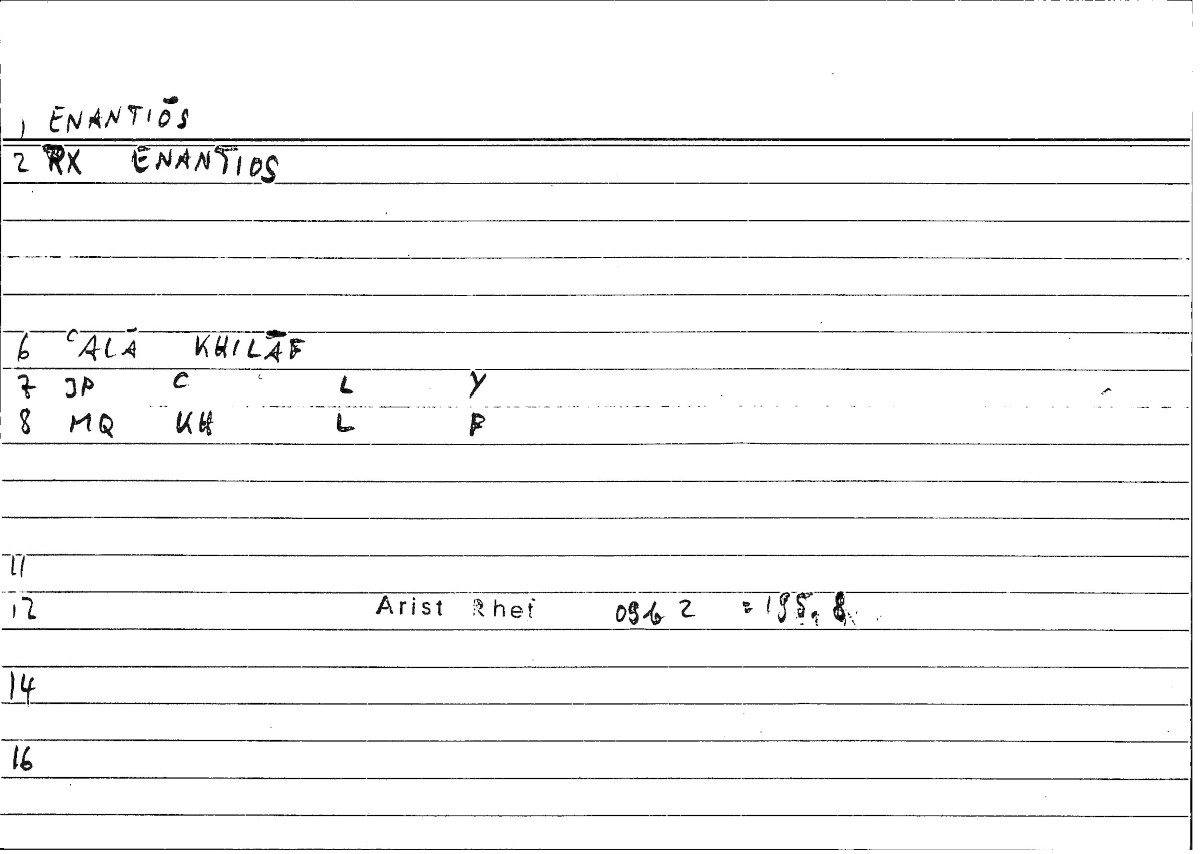 1 ENANTIŌS
2 RX ENANTIOS
6 ᶜALĀ KHILĀF
7 JP C L Y
8 MQ KH L F
11
12 Arist Rhet 09b 2 = 195, 8
14
16